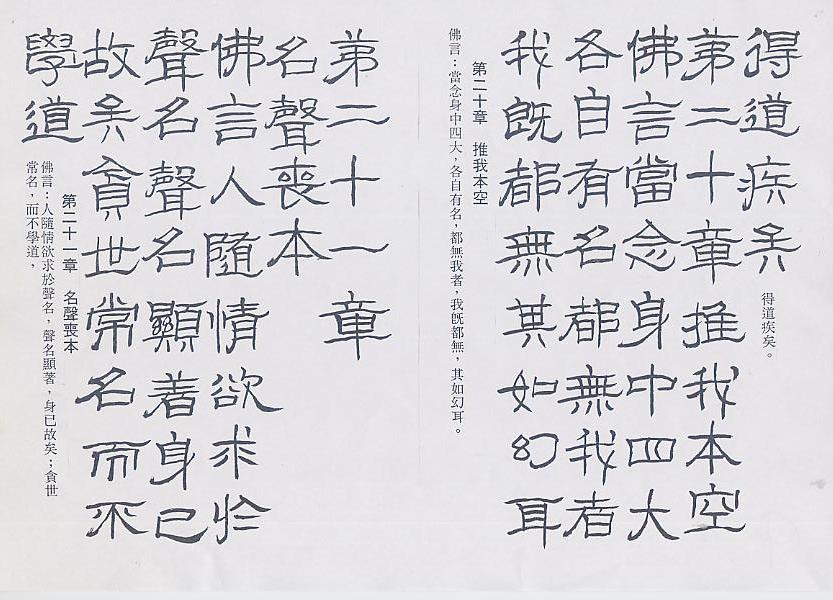 得道疾矣
得道疾矣。
第二十章推我本空
佛言當念身中四大
各自有名都無我者
我既都無其如幻耳
第二十章 推我本空
佛言：當念身中四大，各自有名，都無我者，我既都無，其如幻耳。
第二十一章
名聲喪本
佛言人隨情欲求於
聲名聲名顯着身已
故矣貪世常名而不
學道
第二十一章 名聲喪本
佛言：人隨情欲求於聲名，聲名顯著，身已故矣；貪世
常名，而不學道，